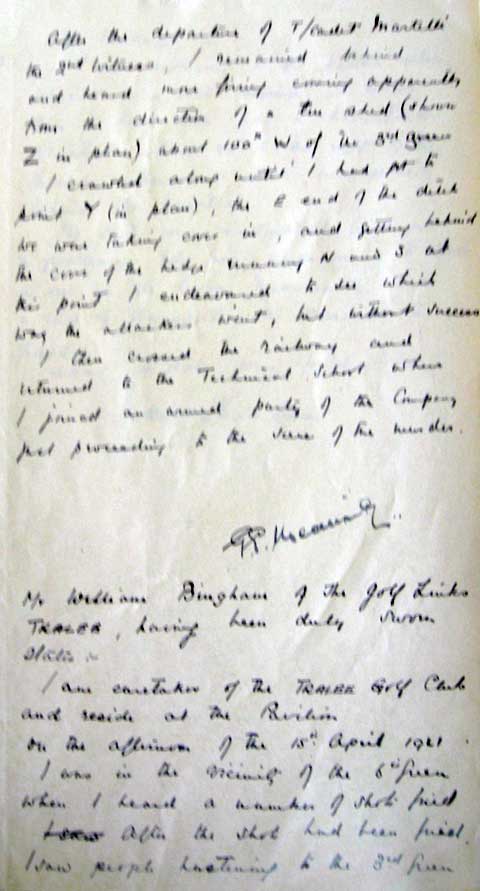 After the departure of T/Cadet Martelli
the 2nd Witness, I remained behind
and heard more firing coming apparently
from the direction of a tin shed (shown
Z in plan) about 100x W of the 3rd green
I crawled along until I had got to
point Y (in plan), the E end of the ditch
we were taking cover in, and getting behind
the cover of the hedge running N and S at
this point I endeavoured to see which
way the attackers went, but without success
I then crossed the railway and
returned to the Technical School where
I joined an armed party of the Company
just proceeding to the scene of the murder.
Mr William Bingham of The Golf Links
TRALEE, having been duly sworn
States :-
I am caretaker of the TRALEE Golf Club
and reside at the Pavilion
On the afternoon of the 15th April 1921
I was in the vicinity of the 6th Green
when I heard a number of shots fired
I saw After the shots had been fired.
I saw people hastening to the 3rd Green